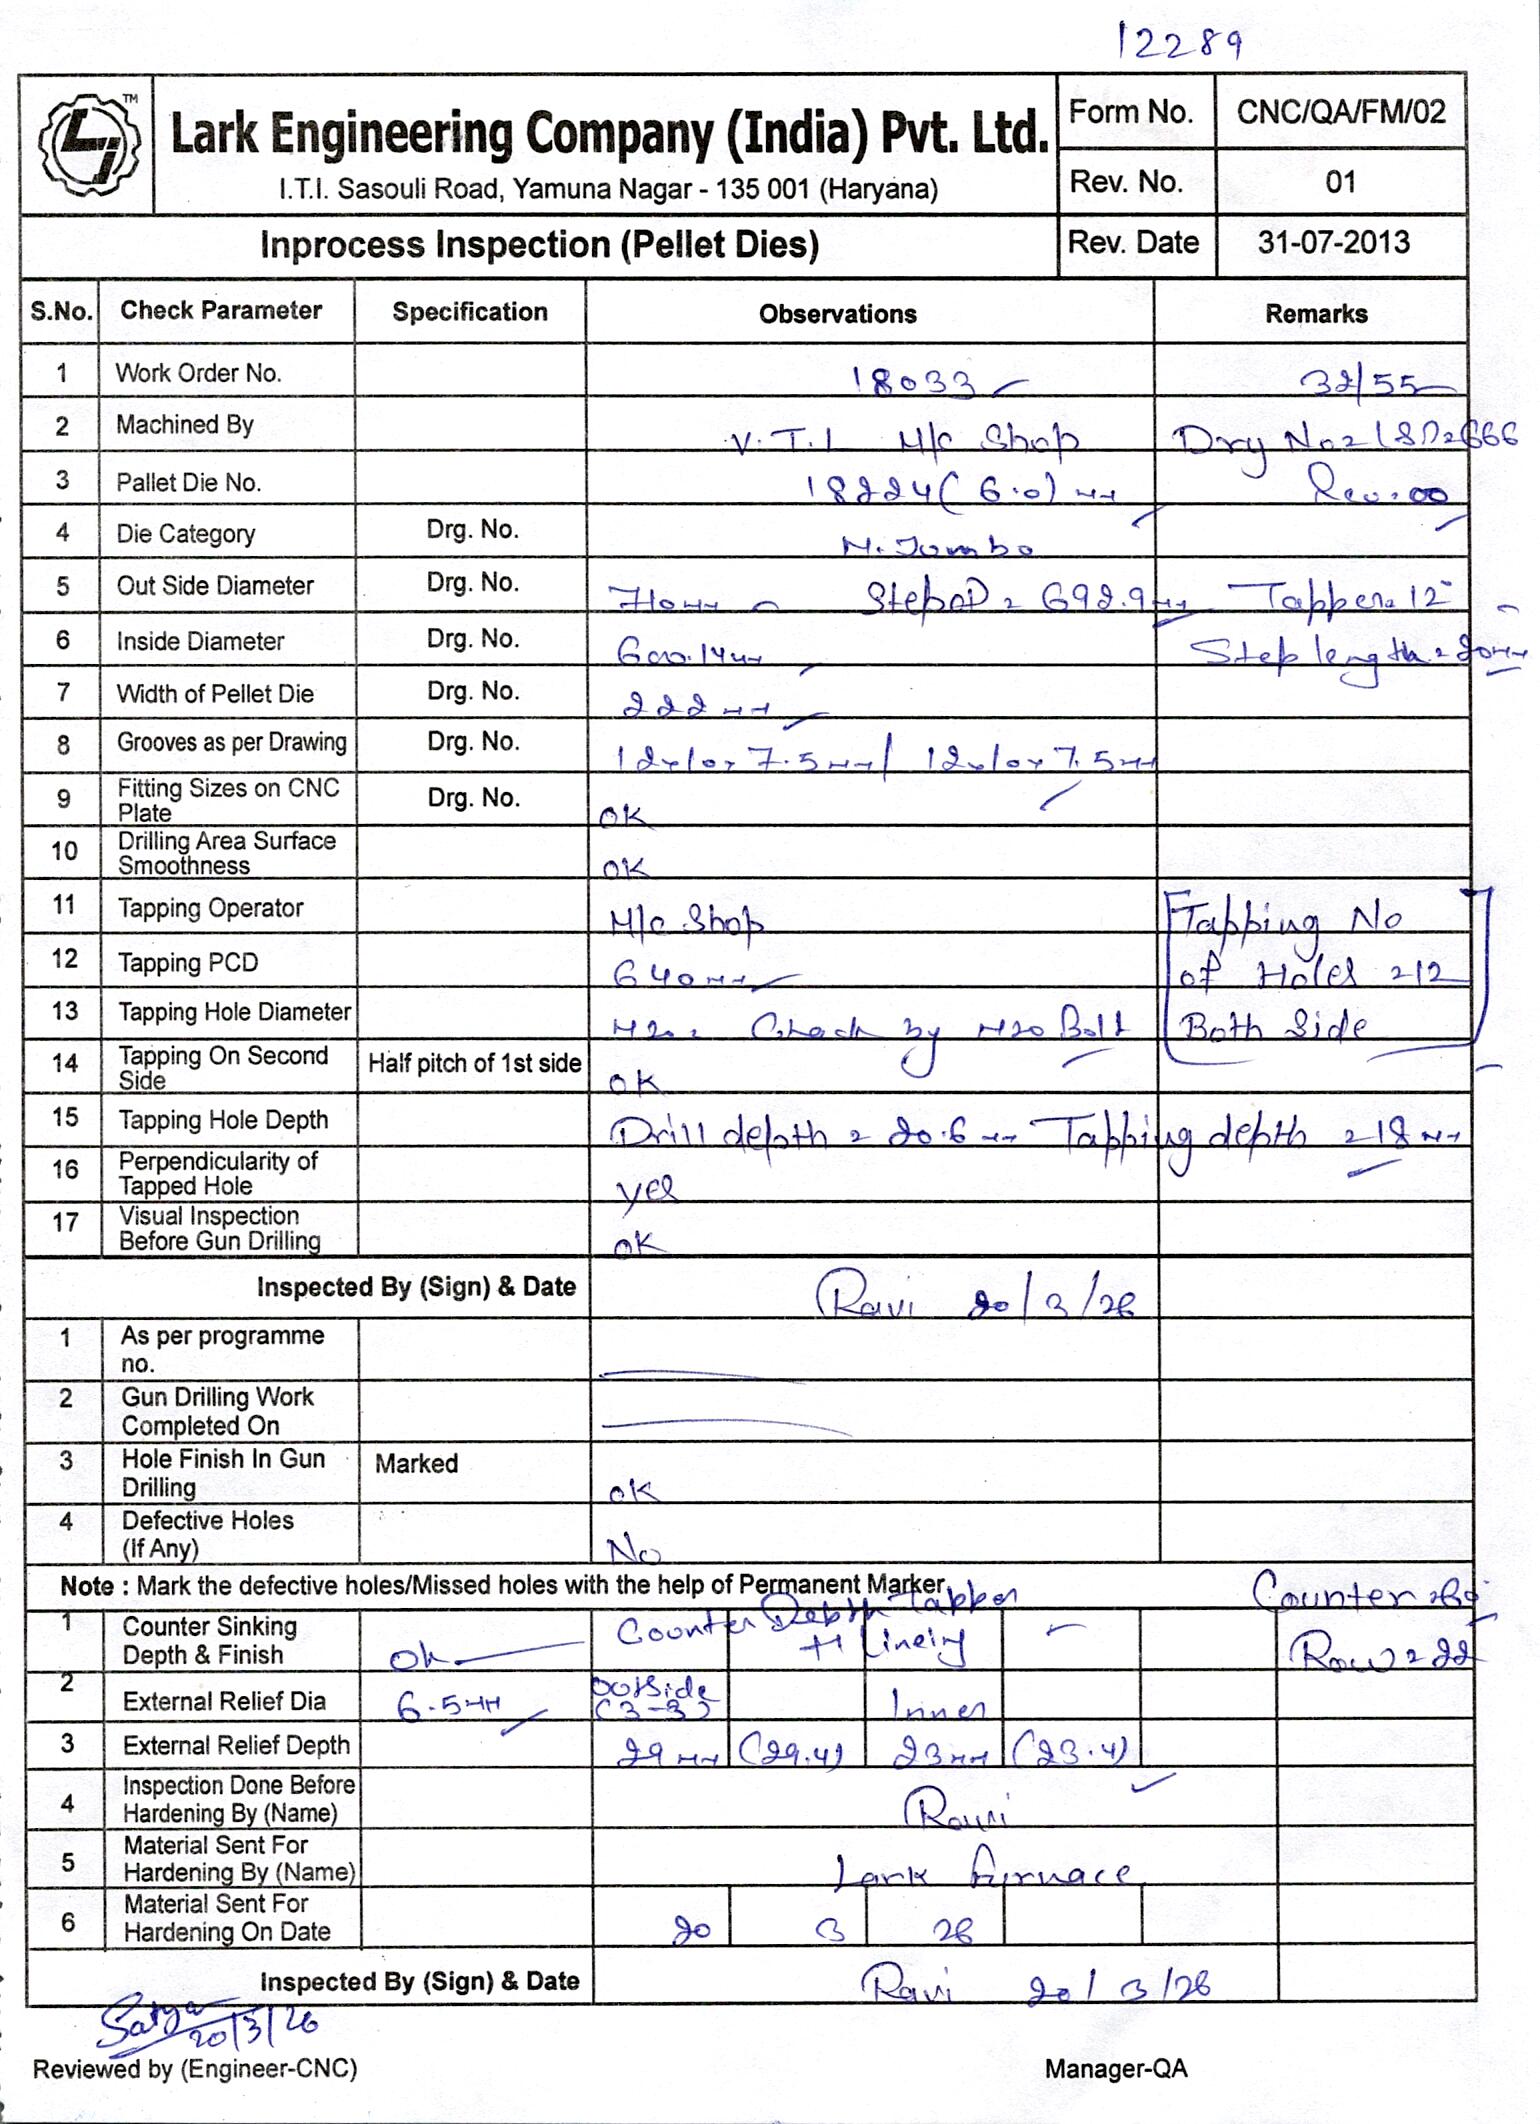 12289
TM
Lark Engineering Company (India) Pvt. Ltd.
I.T.I. Sasouli Road, Yamuna Nagar - 135 001 (Haryana)
Form No. CNC/QA/FM/02
Rev. No. 01
Inprocess Inspection (Pellet Dies)
Rev. Date 31-07-2013
S.No. Check Parameter Specification Observations Remarks
1 Work Order No. 18033 32/55
2 Machined By V.T.L M/c Shop
3 Pallet Die No. 18224 (6.0) mm Rev. 00
4 Die Category Drg. No. M. Jumbo
5 Out Side Diameter Drg. No. 710mm Step OD = 692.9mm Tapper = 12°
6 Inside Diameter Drg. No. 600.14mm Step length = 20mm
7 Width of Pellet Die Drg. No. 222mm
8 Grooves as per Drawing Drg. No. 12x10x7.5mm / 12x10x7.5mm
9 Fitting Sizes on CNC Plate Drg. No. OK
10 Drilling Area Surface Smoothness OK
11 Tapping Operator M/c Shop Tapping No
12 Tapping PCD 640mm of Holes = 12
13 Tapping Hole Diameter M20 = Check by M20 Bolt Both Side
14 Tapping On Second Side Half pitch of 1st side OK
15 Tapping Hole Depth Drill depth = 20.6mm Tapping depth = 18mm
16 Perpendicularity of Tapped Hole yes
17 Visual Inspection Before Gun Drilling OK
Inspected By (Sign) & Date Ravi 20/3/26
1 As per programme no.
2 Gun Drilling Work Completed On
3 Hole Finish In Gun Drilling Marked OK
4 Defective Holes (If Any) No
Note : Mark the defective holes/Missed holes with the help of Permanent Marker
1 Counter Sinking Depth & Finish OK Counter Depth Tapper Counter
Row = 22
2 External Relief Dia 6.5mm Outside (3-3) Inner
3 External Relief Depth 29mm (29.4) 23mm (23.4)
4 Inspection Done Before Hardening By (Name) Ravi
5 Material Sent For Hardening By (Name) Lark furnace
6 Material Sent For Hardening On Date 20 3 26
Inspected By (Sign) & Date Ravi 20/3/26
Satya 20/3/26
Reviewed by (Engineer-CNC) Manager-QA